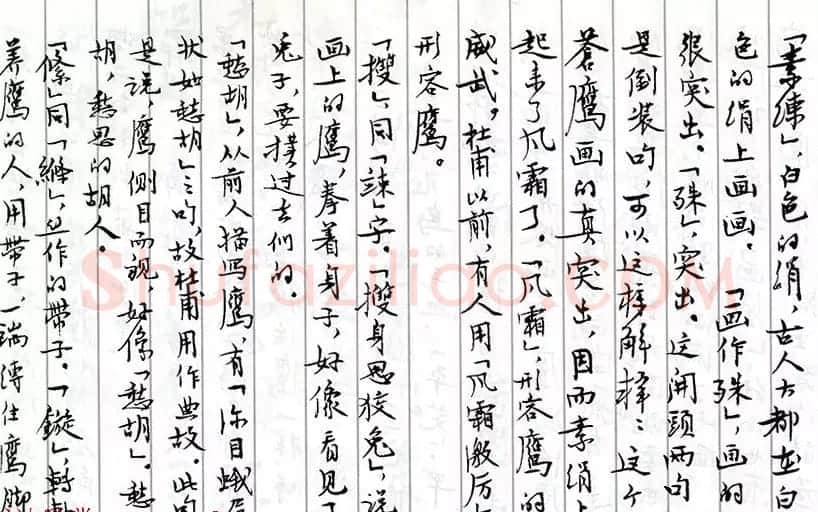 「素练」，白色的绢，古人大都在白
色的绢上画画。「画作殊」，画的
很突出。「殊」，突出。这开头两句
是倒装句，可以这样解释：这个
苍鹰画的真突出，因而素绢上
起来了风霜了。「风霜」，形容鹰的
威武。杜甫以前，有人用「风霜激厉」
形容鹰。
「㩳」，同「竦」字。「㩳身思狡兔」，说
画上的鹰，拳着身子，好像看见了
兔子，要扑过去们的。
「愁胡」，从前人描写鹰，有「你目蛾
状如愁胡」之句，故杜甫用作典故。此句
是说，鹰侧目而视，好像「愁胡」。愁
胡，愁思的胡人。
「絛」同「縧」，丝作的带子。「鏇」，转轴
养鹰的人，用带子，一端缚住鹰脚
Shufaziliao.COM